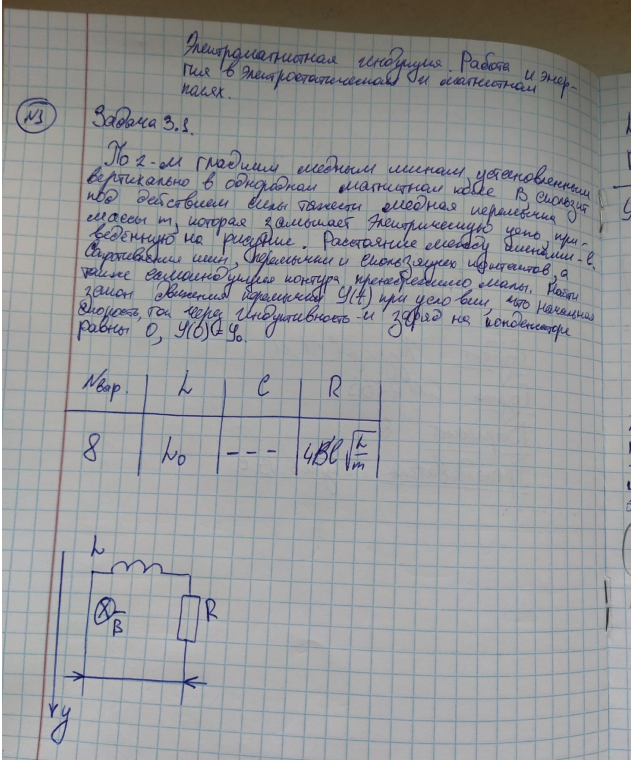 Электромагнитная индукция. Работа и энер-
гия в электростатическом и магнитном
полях.
№1
Задача 3.1.
По 2-м гладким медным шинам, установленным
вертикально в однородном магнитном поле В, скользит
под действием силы тяжести медная перемычка
массы m, которая замыкает электрическую цепь, при-
ведённую на рисунке. Расстояние между шинами - l.
Сопротивления шин, перемычки и скользящих контактов, а
также самоиндукция контура пренебрежимо малы. Найти
закон движения перемычки y(t) при условии, что начальная
скорость, ток через индуктивность и заряд на конденсаторе
равны 0, y(0)=y₀.
Nвар. L C R
8 L₀ --- 4Bl√(L/m)
L
B R
y